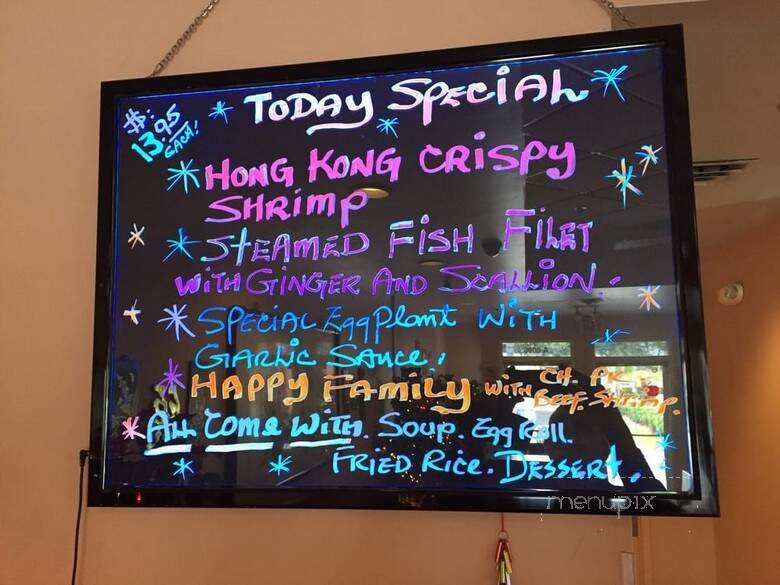 $: 13.95 EACH!
TODAY SPECIAL
HONG KONG CRISPY
SHRIMP
STEAMED FISH FILET
WITH GINGER AND SCALLION.
SPECIAL EggPlant WITH
GARLIC SAUCE.
HAPPY FAMILY WITH CH. PK. BEEF. SHRIMP.
ALL COME WITH. SOUP. Egg Roll.
FRIED RICE. DESSERT.
menupix